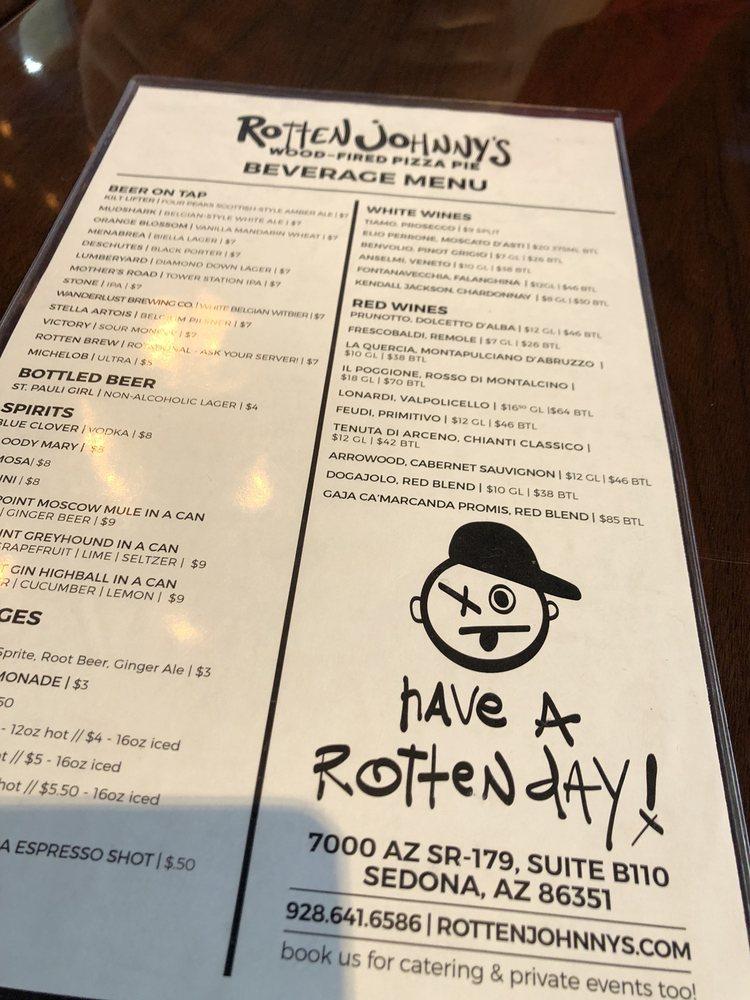 ROTTEN JOHNNY'S
WOOD-FIRED PIZZA PIE
BEVERAGE MENU
BEER ON TAP
KILT LIFTER | FOUR PEAKS SCOTTISH-STYLE AMBER ALE | $7
MUDSHARK | BELGIAN-STYLE WHITE ALE | $7
ORANGE BLOSSOM | VANILLA MANDARIN WHEAT | $7
MENABREA | BIELLA LAGER | $7
DESCHUTES | BLACK PORTER | $7
LUMBERYARD | DIAMOND DOWN LAGER | $7
MOTHER'S ROAD | TOWER STATION IPA | $7
STONE | IPA | $7
WANDERLUST BREWING CO. | WHITE BELGIAN WITBIER | $7
STELLA ARTOIS | BELGIUM PILSNER | $7
VICTORY | SOUR MONKEY | $7
ROTTEN BREW | ROTATIONAL - ASK YOUR SERVER! | $7
MICHELOB | ULTRA | $5
BOTTLED BEER
ST. PAULI GIRL | NON-ALCOHOLIC LAGER | $4
SPIRITS
BLUE CLOVER | VODKA | $8
OODY MARY | $8
MOSA | $8
INI | $8
POINT MOSCOW MULE IN A CAN
| GINGER BEER | $9
INT GREYHOUND IN A CAN
GRAPEFRUIT | LIME | SELTZER | $9
T GIN HIGHBALL IN A CAN
R | CUCUMBER | LEMON | $9
GES
Sprite, Root Beer, Ginger Ale | $3
MONADE | $3
50
- 12oz hot // $4 - 16oz iced
ot // $5 - 16oz iced
hot // $5.50 - 16oz iced
A ESPRESSO SHOT | $.50
WHITE WINES
TIAMO, PROSECCO | $9 SPLIT
ELIO PERRONE, MOSCATO D'ASTI | $20 375ML BTL
BENVOLIO, PINOT GRIGIO | $7 GL | $26 BTL
ANSELMI, VENETO | $10 GL | $38 BTL
FONTANAVECCHIA, FALANGHINA | $12GL | $46 BTL
KENDALL JACKSON, CHARDONNAY | $8 GL | $30 BTL
RED WINES
PRUNOTTO, DOLCETTO D'ALBA | $12 GL | $46 BTL
FRESCOBALDI, REMOLE | $7 GL | $26 BTL
LA QUERCIA, MONTAPULCIANO D'ABRUZZO |
$10 GL | $38 BTL
IL POGGIONE, ROSSO DI MONTALCINO |
$18 GL | $70 BTL
LONARDI, VALPOLICELLO | $16⁵⁰ GL |$64 BTL
FEUDI, PRIMITIVO | $12 GL | $46 BTL
TENUTA DI ARCENO, CHIANTI CLASSICO |
$12 GL | $42 BTL
ARROWOOD, CABERNET SAUVIGNON | $12 GL | $46 BTL
DOGAJOLO, RED BLEND | $10 GL | $38 BTL
GAJA CA'MARCANDA PROMIS, RED BLEND | $85 BTL
HAVE A
ROTTEN DAY!
7000 AZ SR-179, SUITE B110
SEDONA, AZ 86351
928.641.6586 | ROTTENJOHNNYS.COM
book us for catering & private events too!